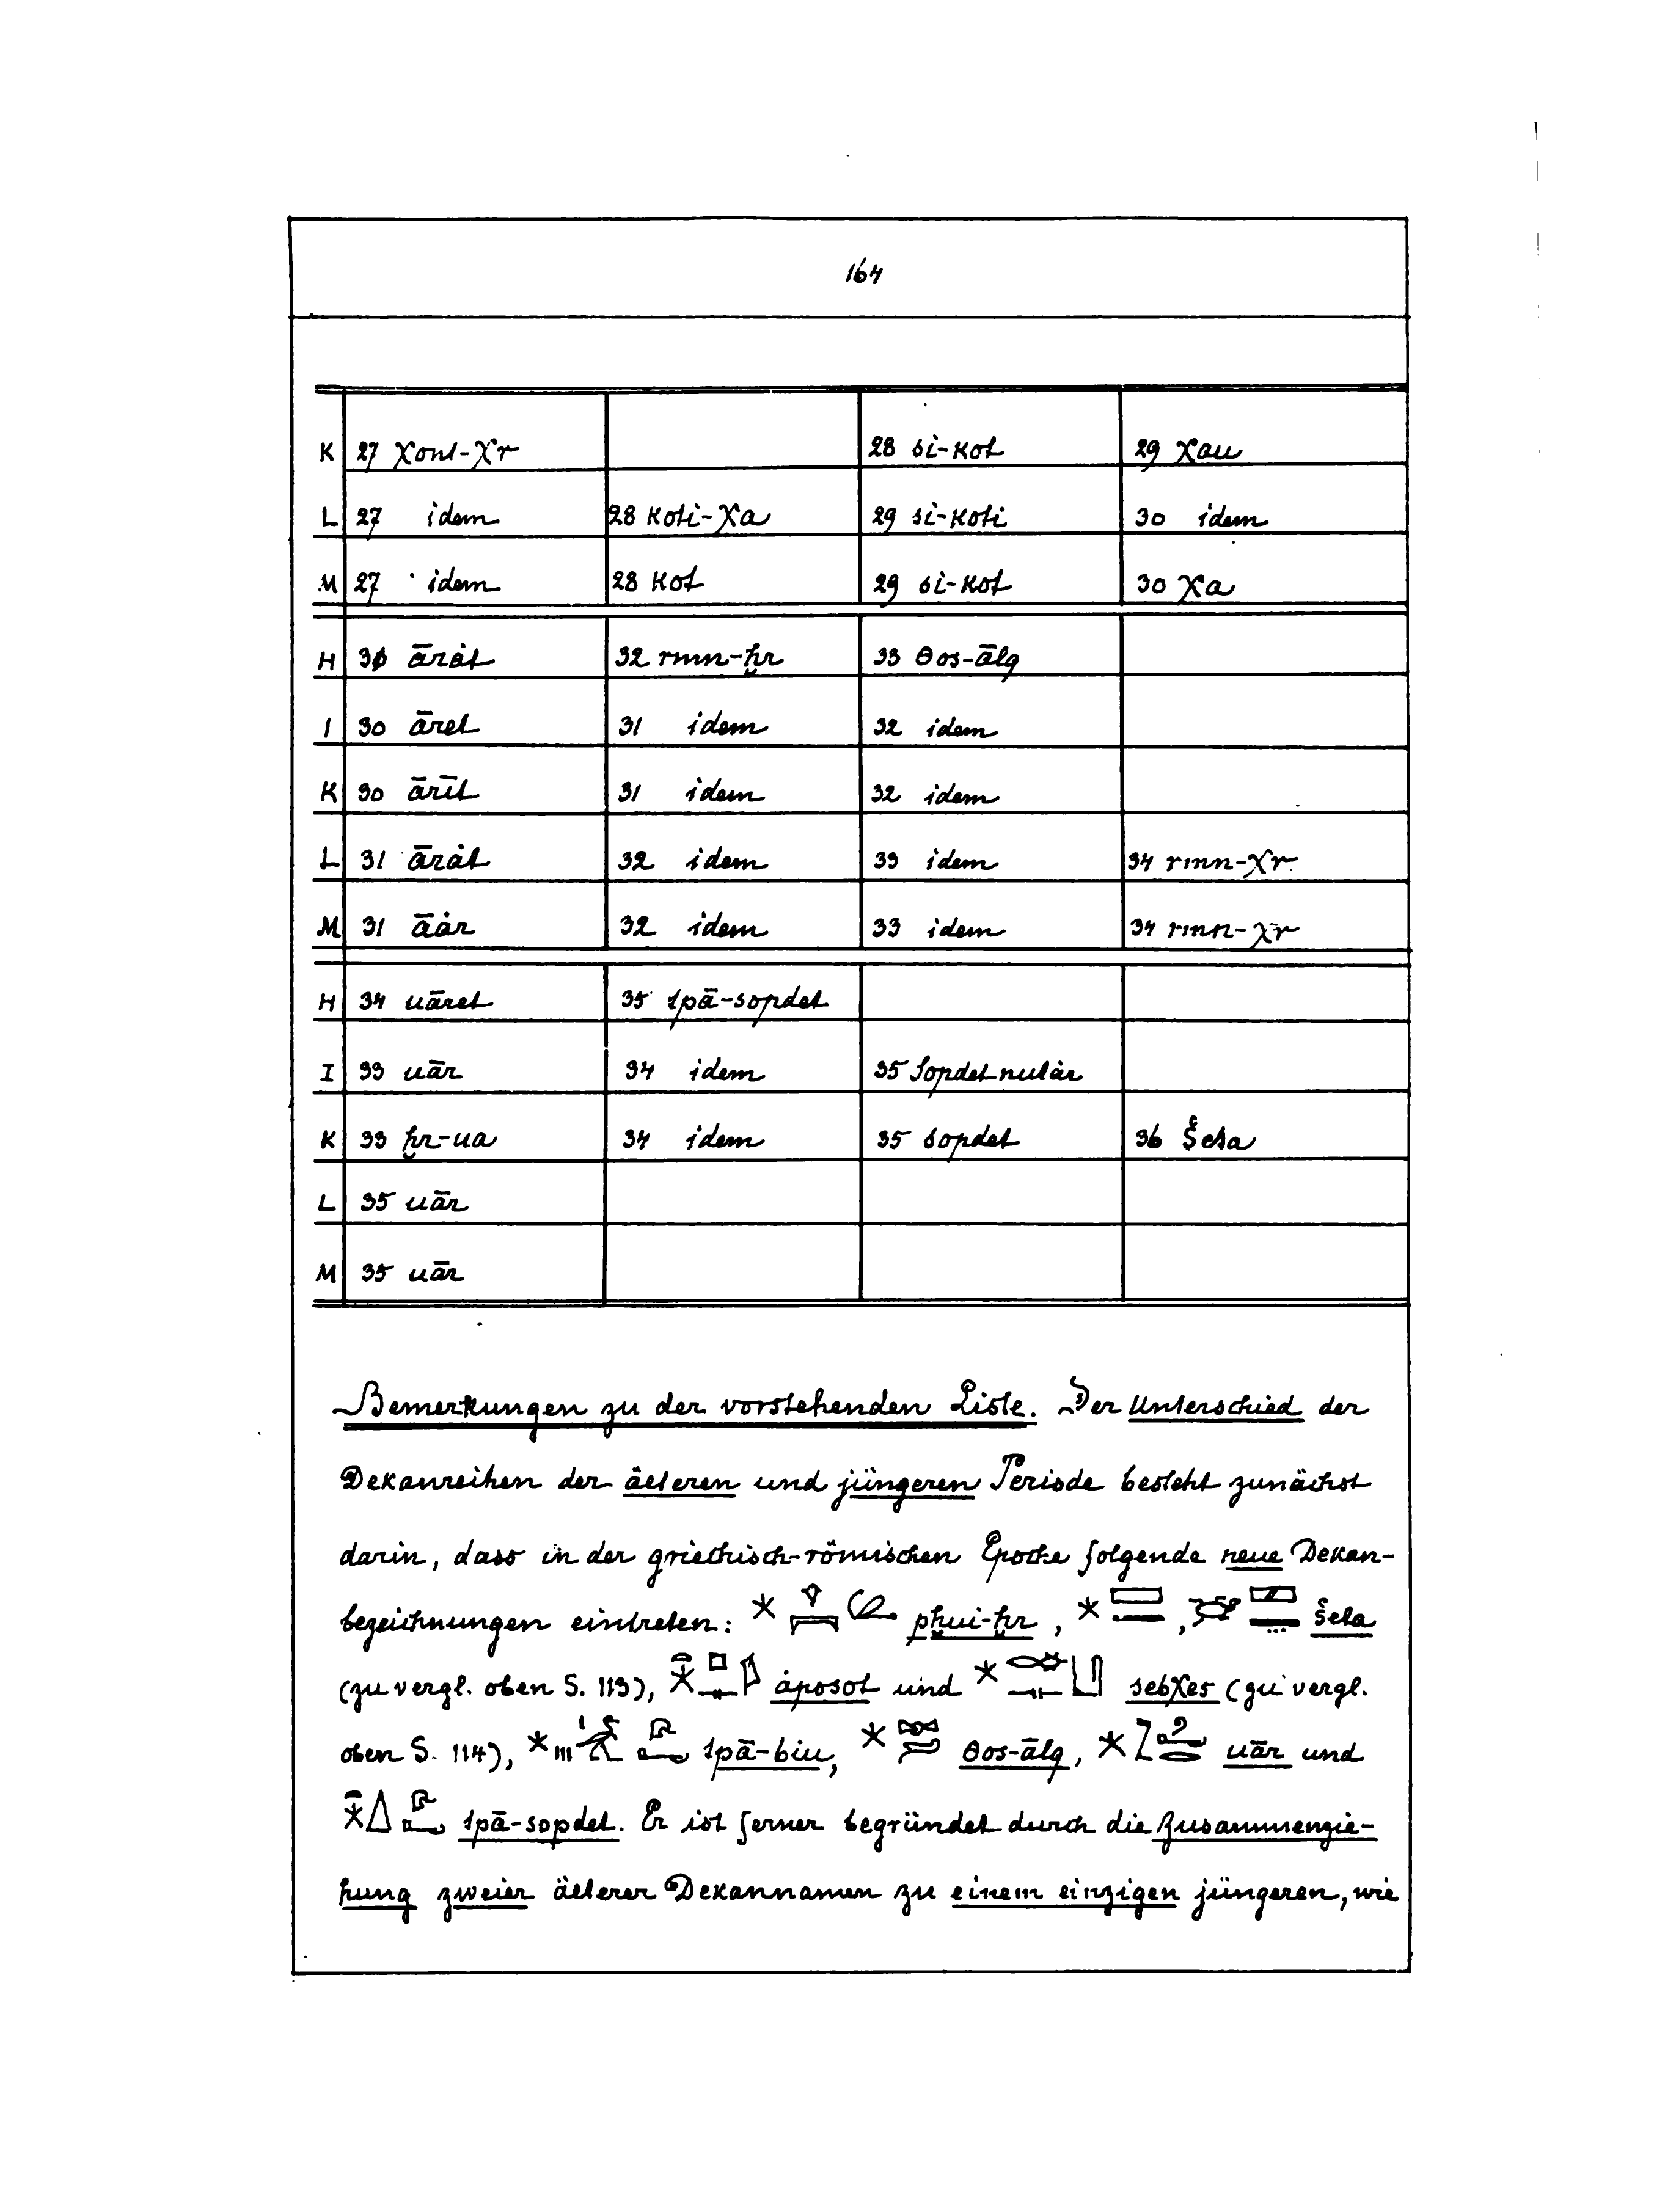 164
K 27 χont-χr 28 si-kot 29 χau
L 27 idem 28 koti-χa 29 si-koti 30 idem
M 27 idem 28 kot 29 si-kot 30 χa
H ārȧt 32 rmn-ḫr 33 θos-ālq
I 30 āret 31 idem 32 idem
K 30 ārīt 31 idem 32 idem
L 31 ārȧt 32 idem 33 idem 34 rmn-χr
M 31 āȧr 32 idem 33 idem 34 rmn-χr
H 34 uāret 35 tpā-sopdet
I 33 uār 34 idem 35 Sopdet nutȧr
K 33 ḫr-ua 34 idem 35 sopdet 36 šeta
L 35 uār
M 35 uār
Bemerkungen zu der vorstehenden Liste. Der Unterschied der
Dekanreihen der älteren und jüngeren Periode besteht zunächst
darin, dass in der griechisch-römischen Epoche folgende neue Dekan-
bezeichnungen eintreten: pḥui-ḥr, , šeta
(zu vergl. oben S. 113), ȧposot und sebχes (zu vergl.
oben S. 114), tpā-biu, θos-ālq, uār und
tpā-sopdet. Er ist ferner begründet durch die Zusammenzie-
hung zweier älterer Dekannamen zu einem einzigen jüngeren, wie